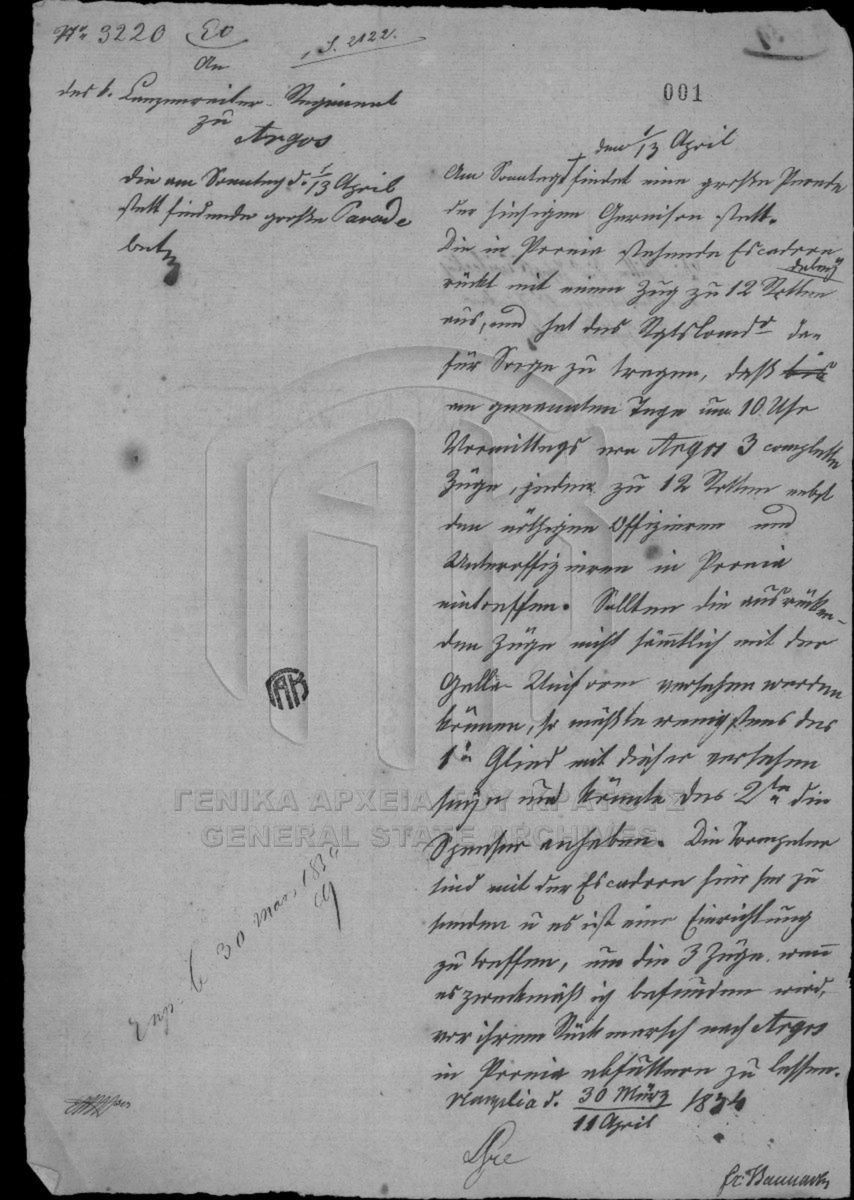 No 3220
S. 2122.
An
das k. Lanzenreiter-Regiment
zu
Argos
die am Sonntag d. 1/13 April
statt findende große Parade
betr.
001
den 1/13 April
Am Sonntag findet eine große Parade
der hiesigen Garnison statt.
Die in Pronia stehende Escadron
rückt mit einem Zug zu 12 Rotten
aus, und hat das Rgtskomdo da-
für Sorge zu tragen, daß
am genannten Tage um 10 Uhr
Vormittags von Argos 3 complette
Züge, jeder zu 12 Rotten nebst
den nöthigen Offizieren und
Unteroffizieren in Pronia
eintreffen. Sollten die ausrücken-
den Züge nicht sämmtlich mit der
Galla-Uniform versehen werden
können, so müßte wenigstens das
1te Glied mit dieser versehen
seyn und könnte das 2te die
Spenser anhaben. Die Trompeter
sind mit der Escadron hier her zu
senden u es ist eine Einrichtung
zu treffen, um die 3 Züge wenn
es zweckmäßig befunden wird,
vor ihrem Rückmarsch nach Argos
in Pronia abfüttern zu lassen.
Nauplia d. 30 März / 11 April 1834
Exp. 30 Mars 1834
ΓΕΝΙΚΑ ΑΡΧΕΙΑ ΤΟΥ ΚΡΑΤΟΥΣ
GENERAL STATE ARCHIVES